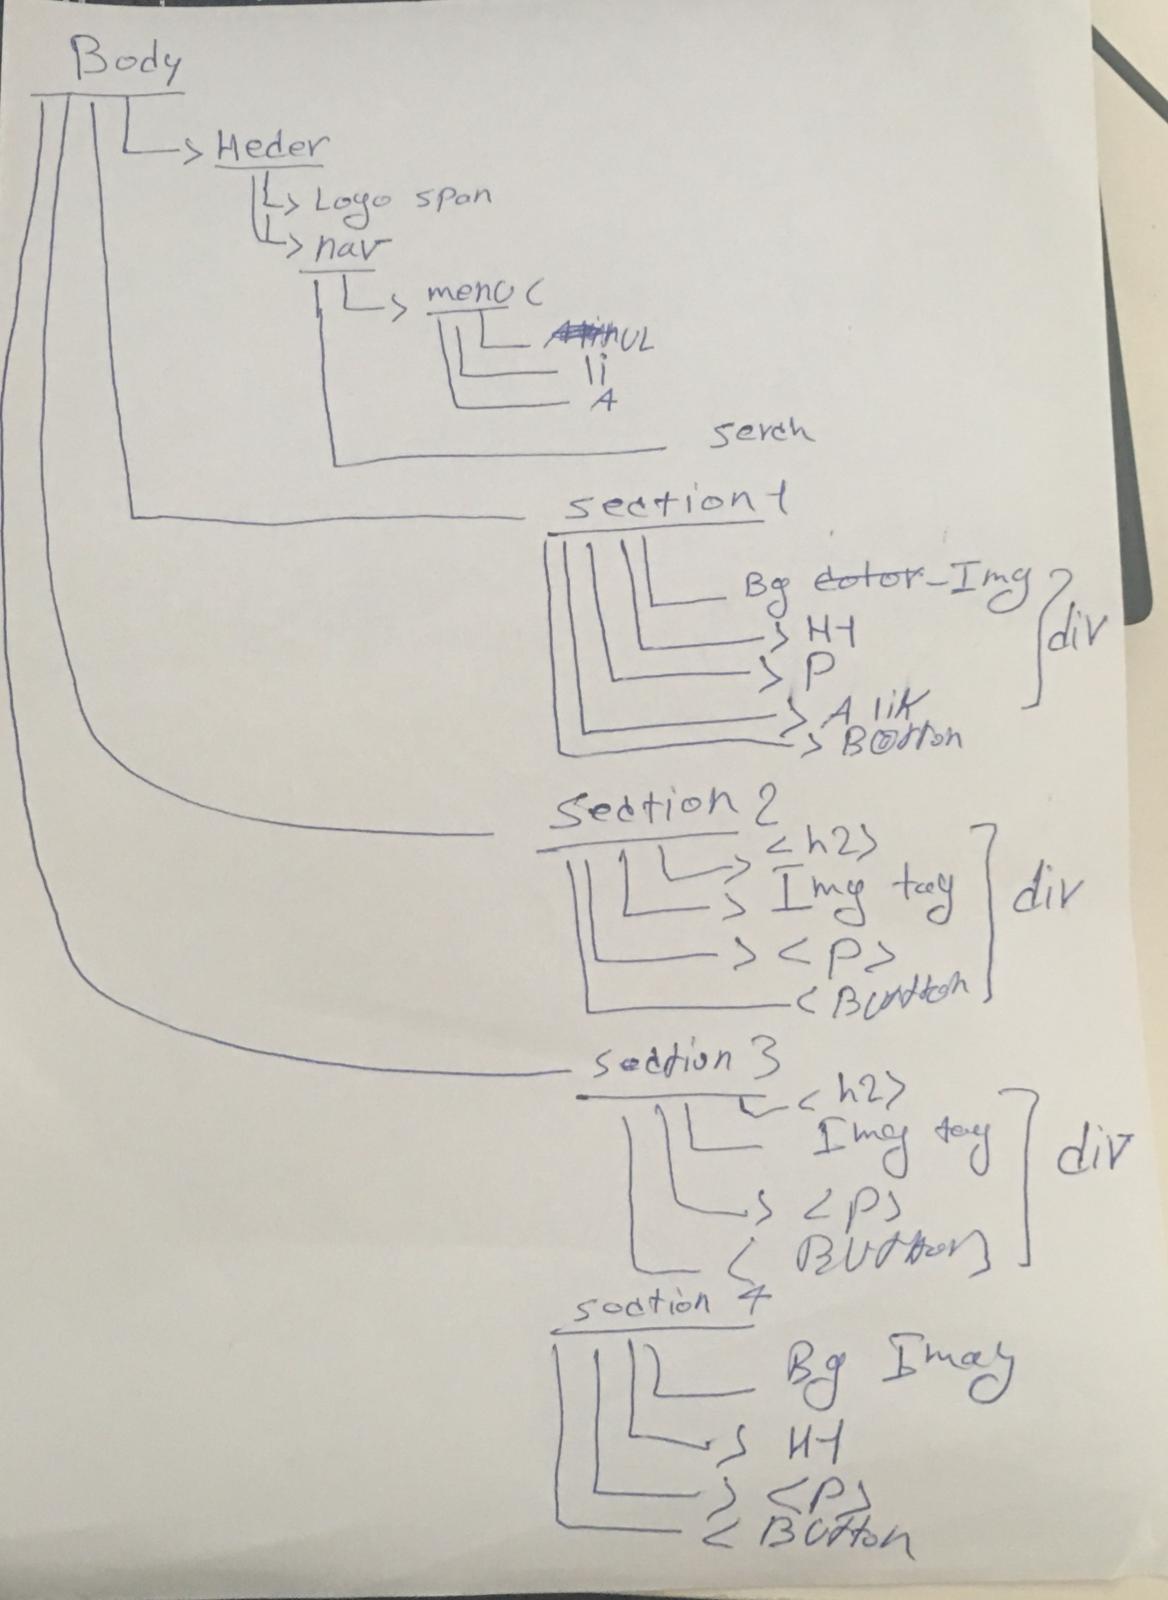 Body
Heder
Logo span
nav
menu <
UL
li
A
serch
section 1
Bg color-Img
div
H1
P
A lik
Button
section 2
<h2>
Img tag
div
> <P>
< Buntton
section 3
<h2>
Img tag
div
> <P>
< Button
section 4
Bg Imag
> H1
> <P>
< Button